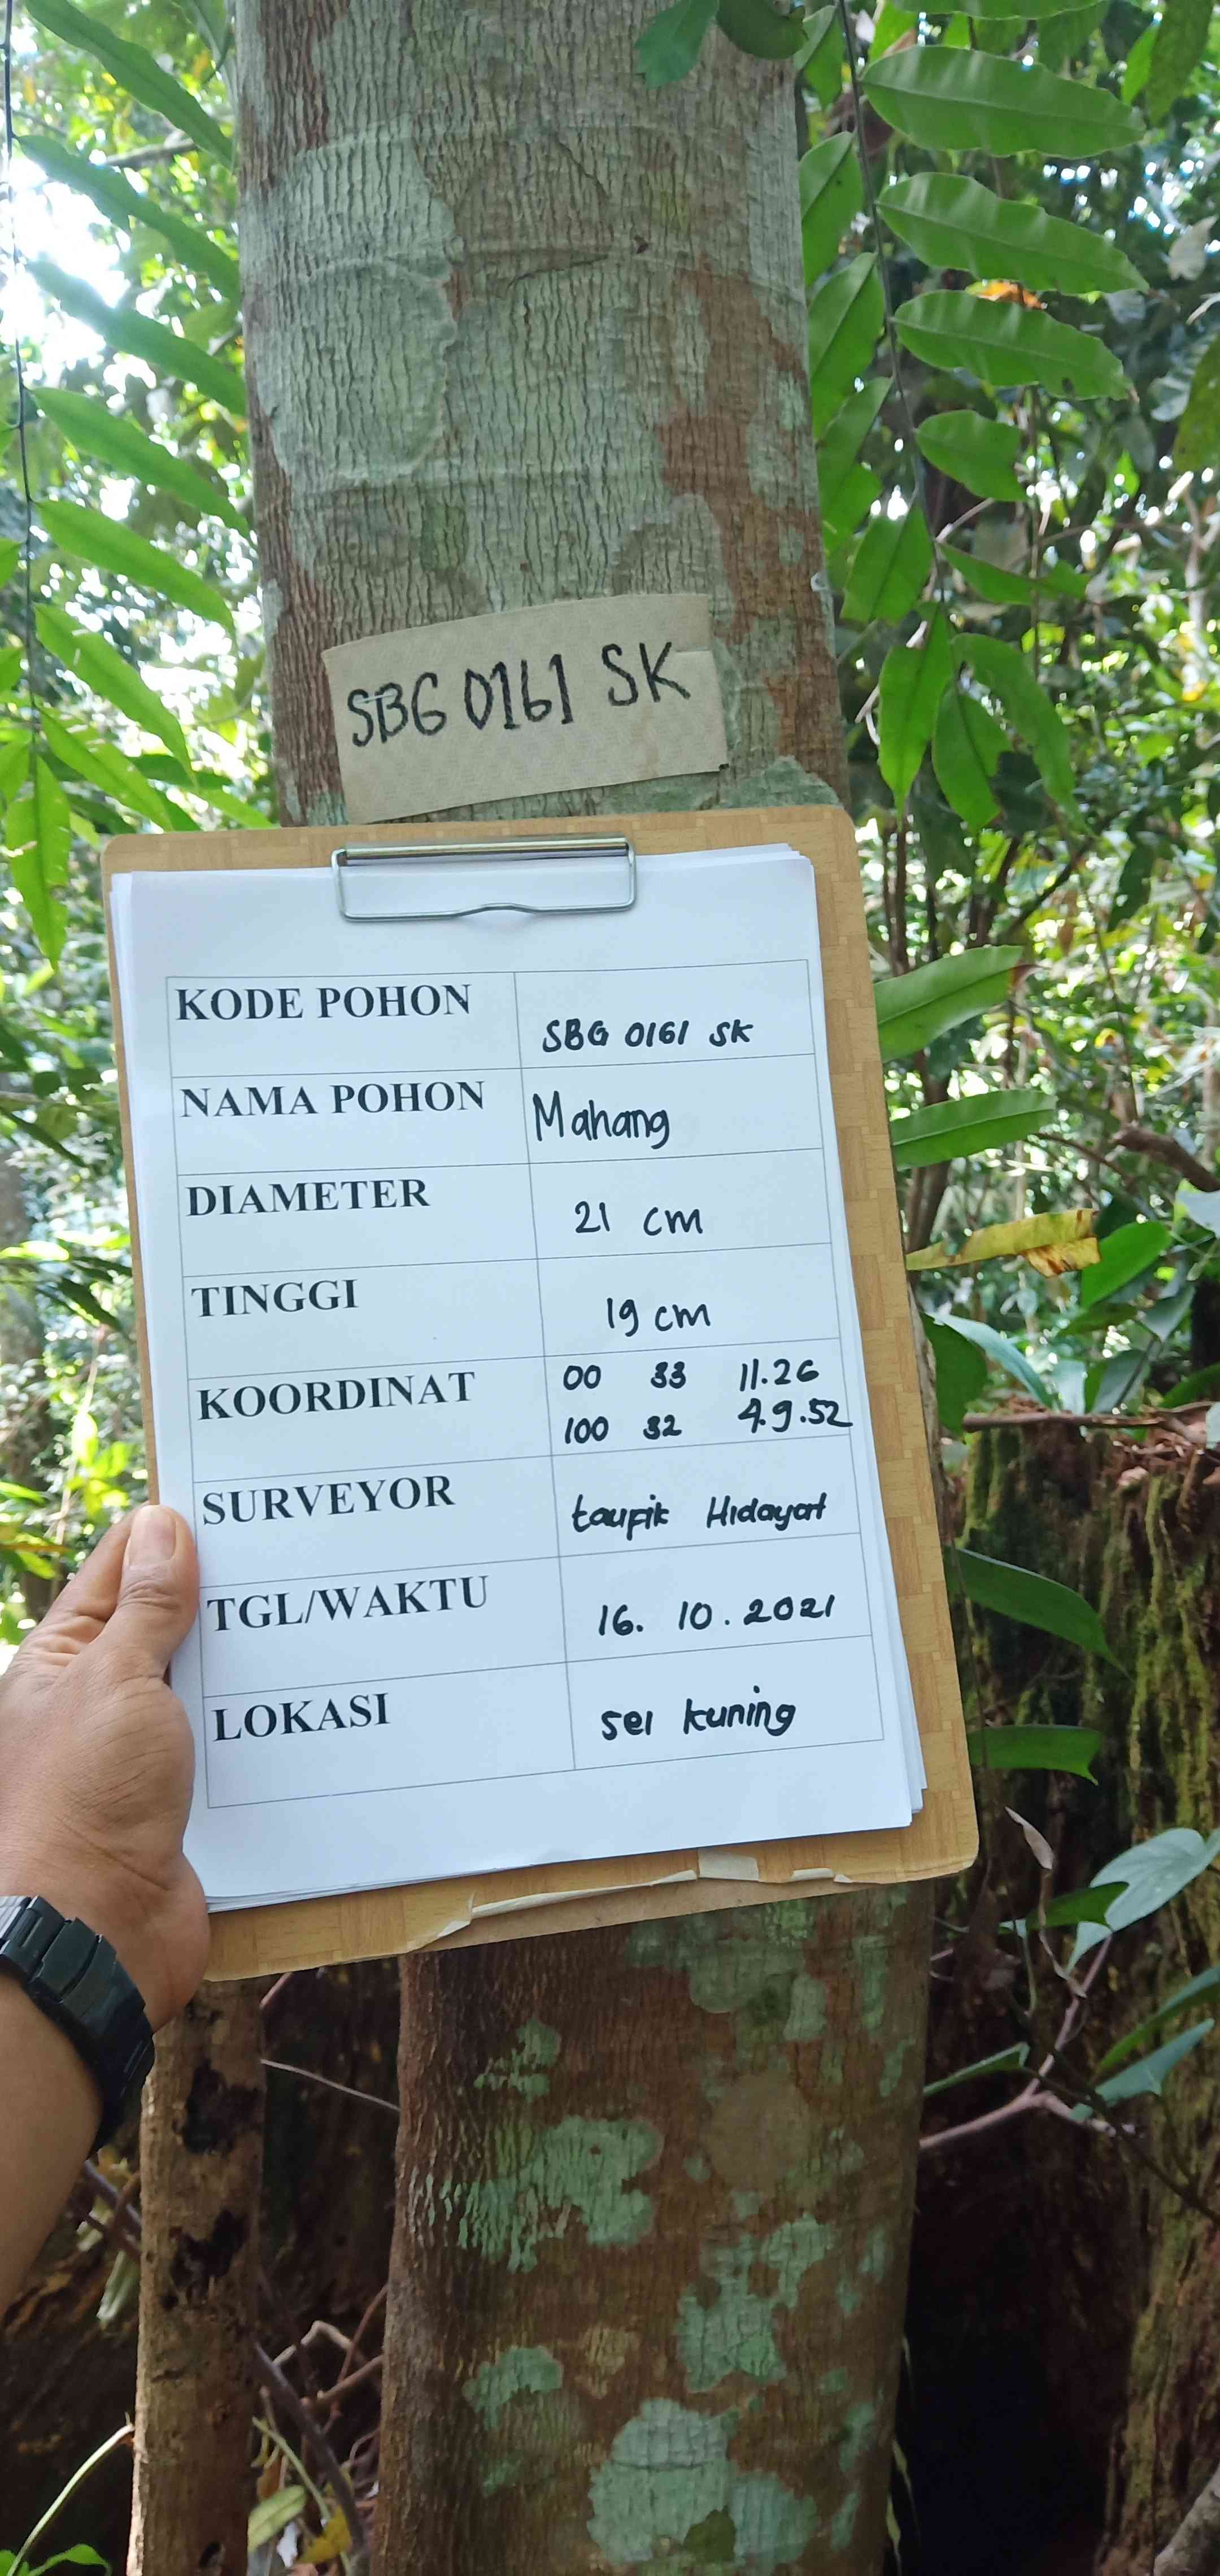 SBG 0161 SK
KODE POHON SBG 0161 SK
NAMA POHON Mahang
DIAMETER 21 cm
TINGGI 19 cm
KOORDINAT 00 33 11.26
100 32 49.52
SURVEYOR taufik Hidayat
TGL/WAKTU 16. 10. 2021
LOKASI sei kuning